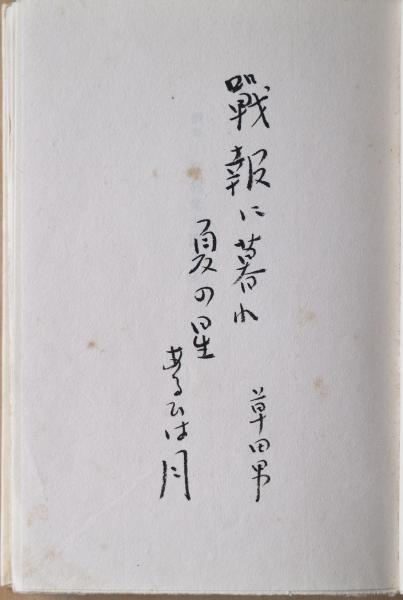 戰報に暮れ
夏の星
あるひは月
草田男